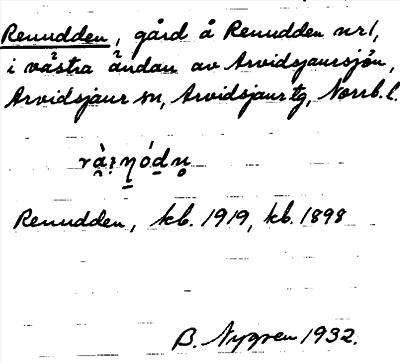 Renudden, gård å Renudden nr 1,
i västra ändan av Arvidsjaursjön,
Arvidsjaur sn, Arvidsjaur tg, Norrb. l.
Renudden, kb. 1919, kb. 1898
B. Nygren 1932.